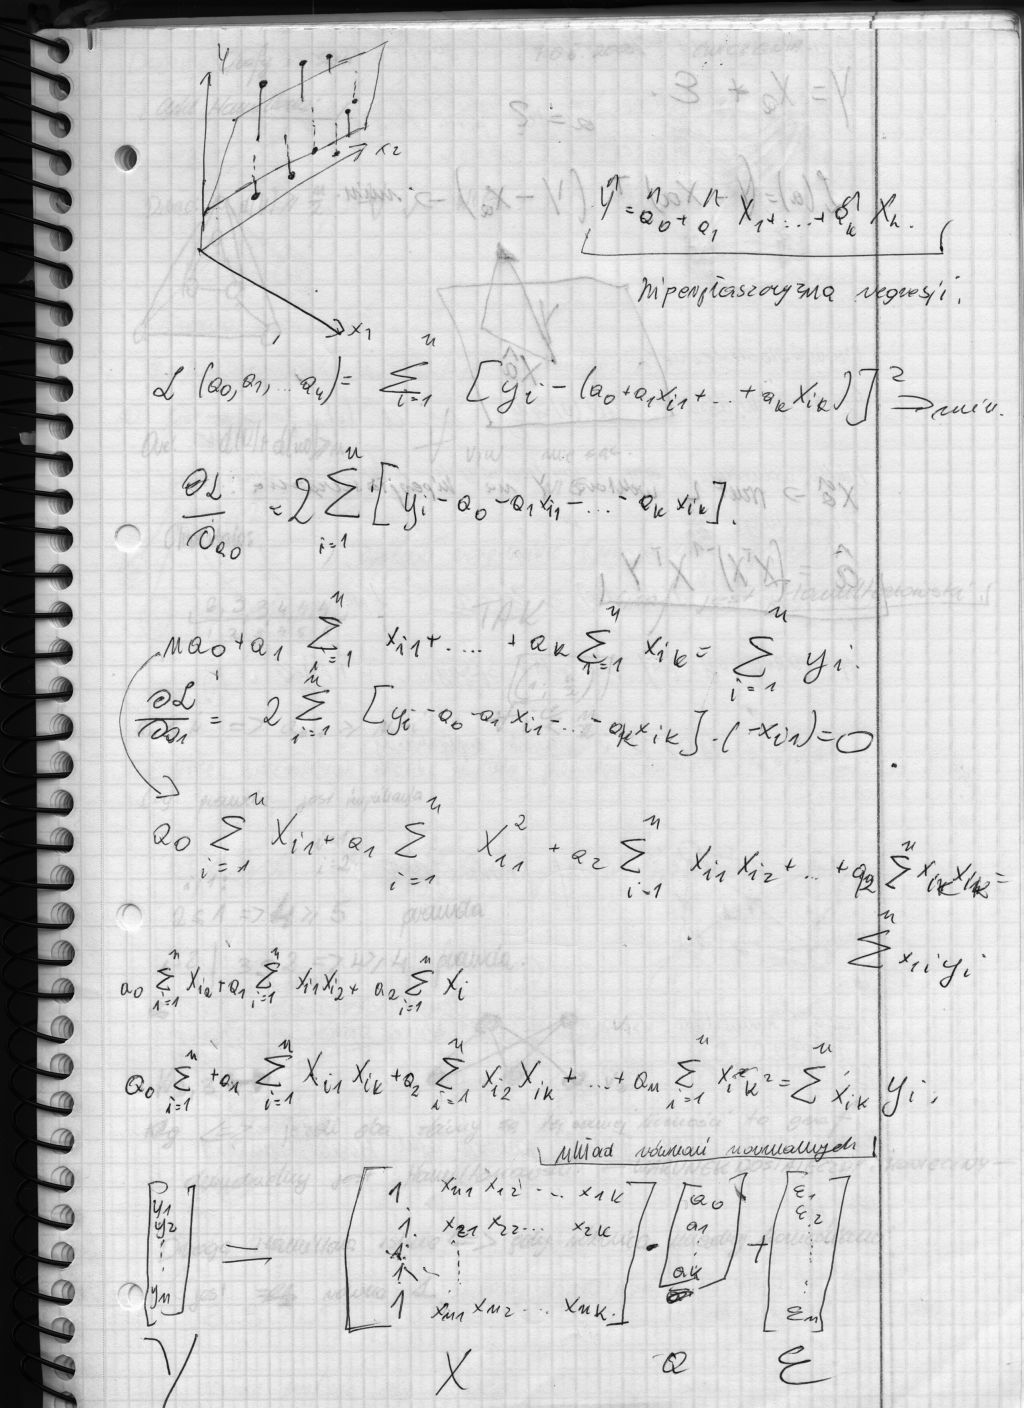 y
x2
x1
Ŷ = â0 + â1 X1 + ... + âk Xk.
hiperpłaszczyzna regresji.
L (a0, a1, ... ak) = Σ_{i=1}^{n} [yi - (a0 + a1xi1 + ... + ak xik)]² ⇒ min.
∂L/∂a0 = 2 Σ_{i=1}^{n} [yi - a0 - a1xi1 - ... - ak xik].
na0 + a1 Σ_{i=1}^{n} xi1 + .... + ak Σ_{i=1}^{n} xik = Σ_{i=1}^{n} yi.
∂L/∂a1 = 2 Σ_{i=1}^{n} [yi - a0 - a1 xi1 - ... - akxik] · (-xi1) = 0
a0 Σ_{i=1}^{n} Xi1 + a1 Σ_{i=1}^{n} X11² + a2 Σ_{i=1}^{n} Xi1 Xi2 + ... + Σ^{n} =
Σ^{n} x1i yi
a0 Σ_{i=1}^{n} Xi2 + a1 Σ_{i=1}^{n} xi1xi2 + a2 Σ_{i=1}^{n} Xi
a0 Σ_{i=1}^{n} + a1 Σ_{i=1}^{n} Xi1 Xik + a2 Σ_{i=1}^{n} Xi2 Xik + ... + an Σ_{i=1}^{n} xik² = Σ^{n} xik yi.
układ równań normalnych
[y1 y2 ⋮ yn] = [1 xn1 x12 ... x1k
1 x21 x22 ... x2k
1
1
1 xn1 xn2 ... xnk.] · [a0 a1 ⋮ ak] + [ε1 ε2 ⋮ εn]
Y X a ε